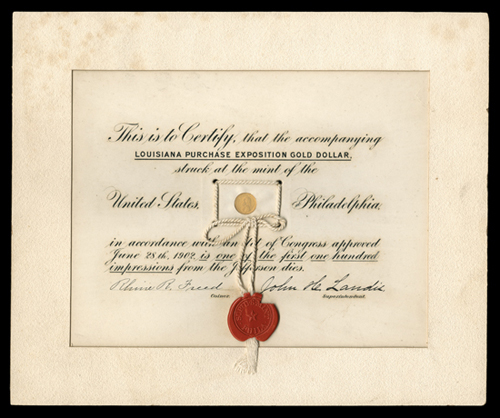 This is to Certify, that the accompanying
LOUISIANA PURCHASE EXPOSITION GOLD DOLLAR,
struck at the mint of the
United States, Philadelphia,
in accordance with an Act of Congress approved
June 28th, 1902, is one of the first one hundred
impressions from the Jefferson dies.
Rhine R. Freed John H. Landis
Coiner. Superintendent.